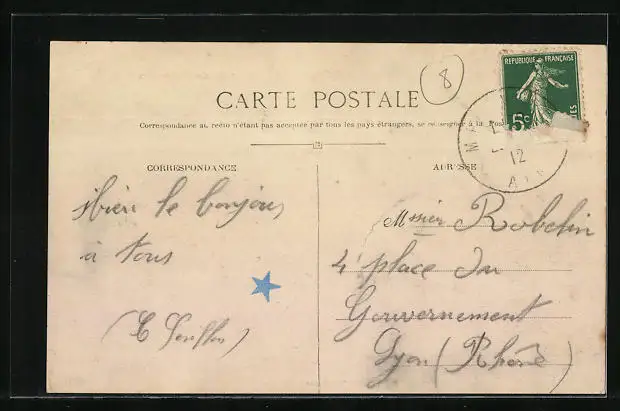 CARTE POSTALE
8
RÉPUBLIQUE FRANÇAISE
5c
Correspondance au recto n'étant pas acceptée par tous les pays étrangers, se renseigner à la Poste
12
CORRESPONDANCE
ADRESSE
bien le bonjour
à tous
Mssier Robelin
4 place du
Gouvernement
Lyon (Rhône)